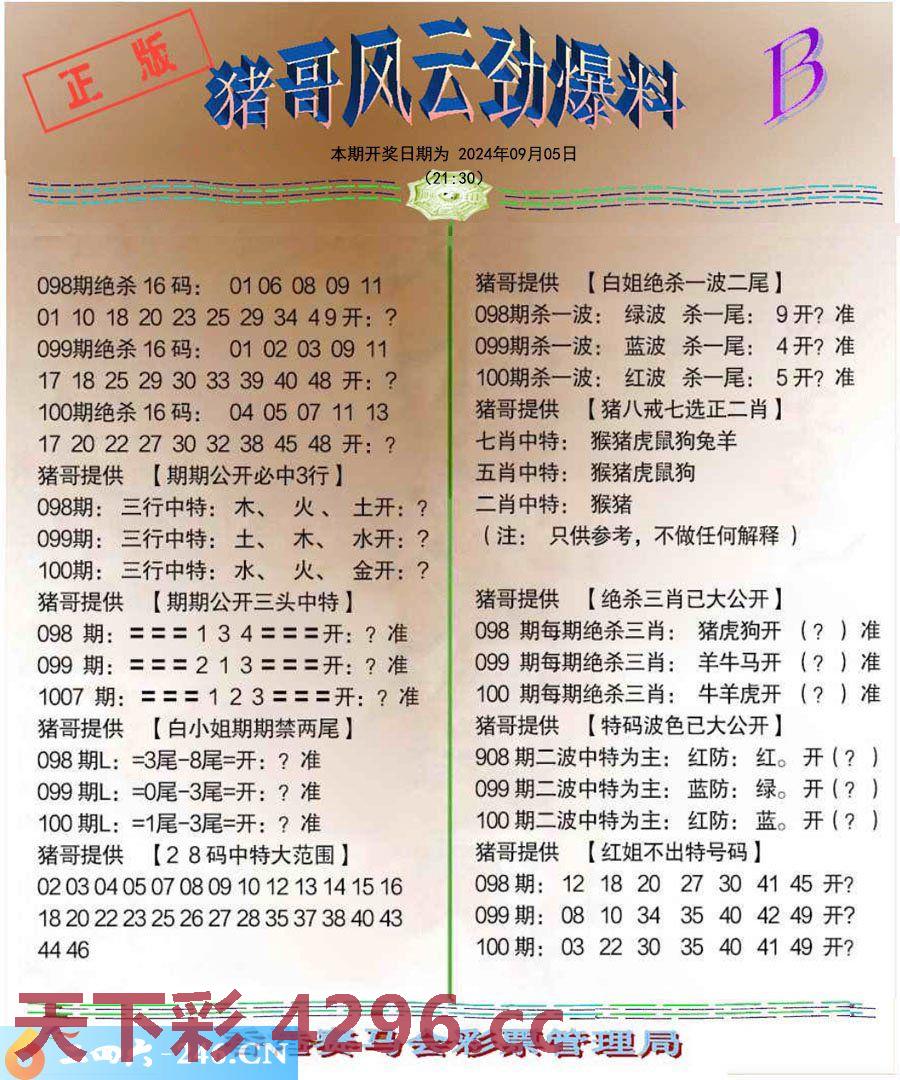 正版
猪哥风云劲爆料
B
本期开奖日期为 2024年09月05日
(21:30)
098期绝杀16码： 01 06 08 09 11
01 10 18 20 23 25 29 34 49开：？
099期绝杀16码： 01 02 03 09 11
17 18 25 29 30 33 39 40 48 开：？
100期绝杀16码： 04 05 07 11 13
17 20 22 27 30 32 38 45 48 开：？
猪哥提供 【期期公开必中3行】
098期： 三行中特： 木、 火、 土开：？
099期： 三行中特： 土、 木、 水开：？
100期： 三行中特： 水、 火、 金开：？
猪哥提供 【期期公开三头中特】
098 期：〓〓〓134〓〓〓开：？准
099 期：〓〓〓213〓〓〓开：？准
1007 期：〓〓〓123〓〓〓开：？准
猪哥提供 【白小姐期期禁两尾】
098期L：=3尾-8尾=开：？准
099期L：=0尾-3尾=开：？准
100期L：=1尾-3尾=开：？准
猪哥提供 【28码中特大范围】
02 03 04 05 07 08 09 10 12 13 14 15 16
18 20 22 23 25 26 27 28 35 37 38 40 43
44 46
猪哥提供 【白姐绝杀一波二尾】
098期杀一波： 绿波 杀一尾： 9开？准
099期杀一波： 蓝波 杀一尾： 4开？准
100期杀一波： 红波 杀一尾： 5开？准
猪哥提供 【猪八戒七选正二肖】
七肖中特： 猴猪虎鼠狗兔羊
五肖中特： 猴猪虎鼠狗
二肖中特： 猴猪
（注： 只供参考，不做任何解释）
猪哥提供 【绝杀三肖已大公开】
098 期每期绝杀三肖： 猪虎狗开 （？）准
099 期每期绝杀三肖： 羊牛马开 （？）准
100 期每期绝杀三肖： 牛羊虎开 （？）准
猪哥提供 【特码波色已大公开】
908期二波中特为主： 红防： 红。 开（？）
099期二波中特为主： 蓝防： 绿。 开（？）
100期二波中特为主： 红防： 蓝。 开（？）
猪哥提供 【红姐不出特号码】
098 期： 12 18 20 27 30 41 45 开?
099 期： 08 10 34 35 40 42 49 开?
100 期： 03 22 30 35 40 41 49 开?
天下彩 4296.cc
二四六-246.CN
马会彩票管理局